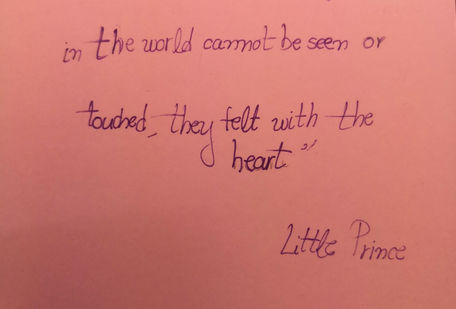 in the world cannot be seen or
touched, they felt with the
heart"
Little Prince